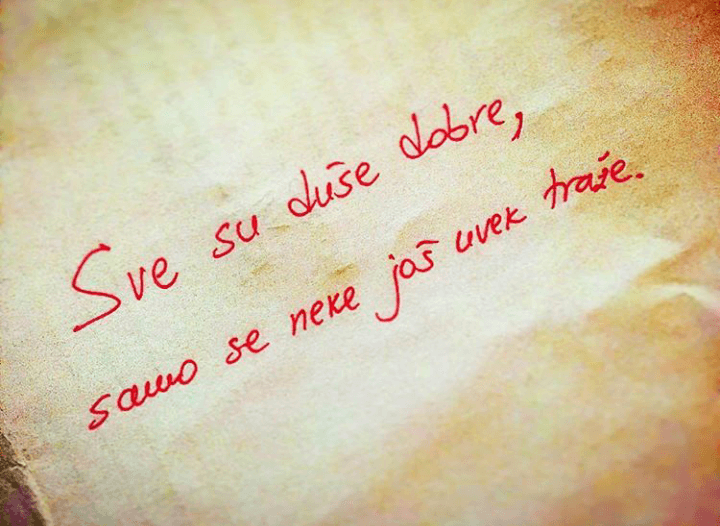 Sve su duše dobre,
samo se neke još uvek traže.